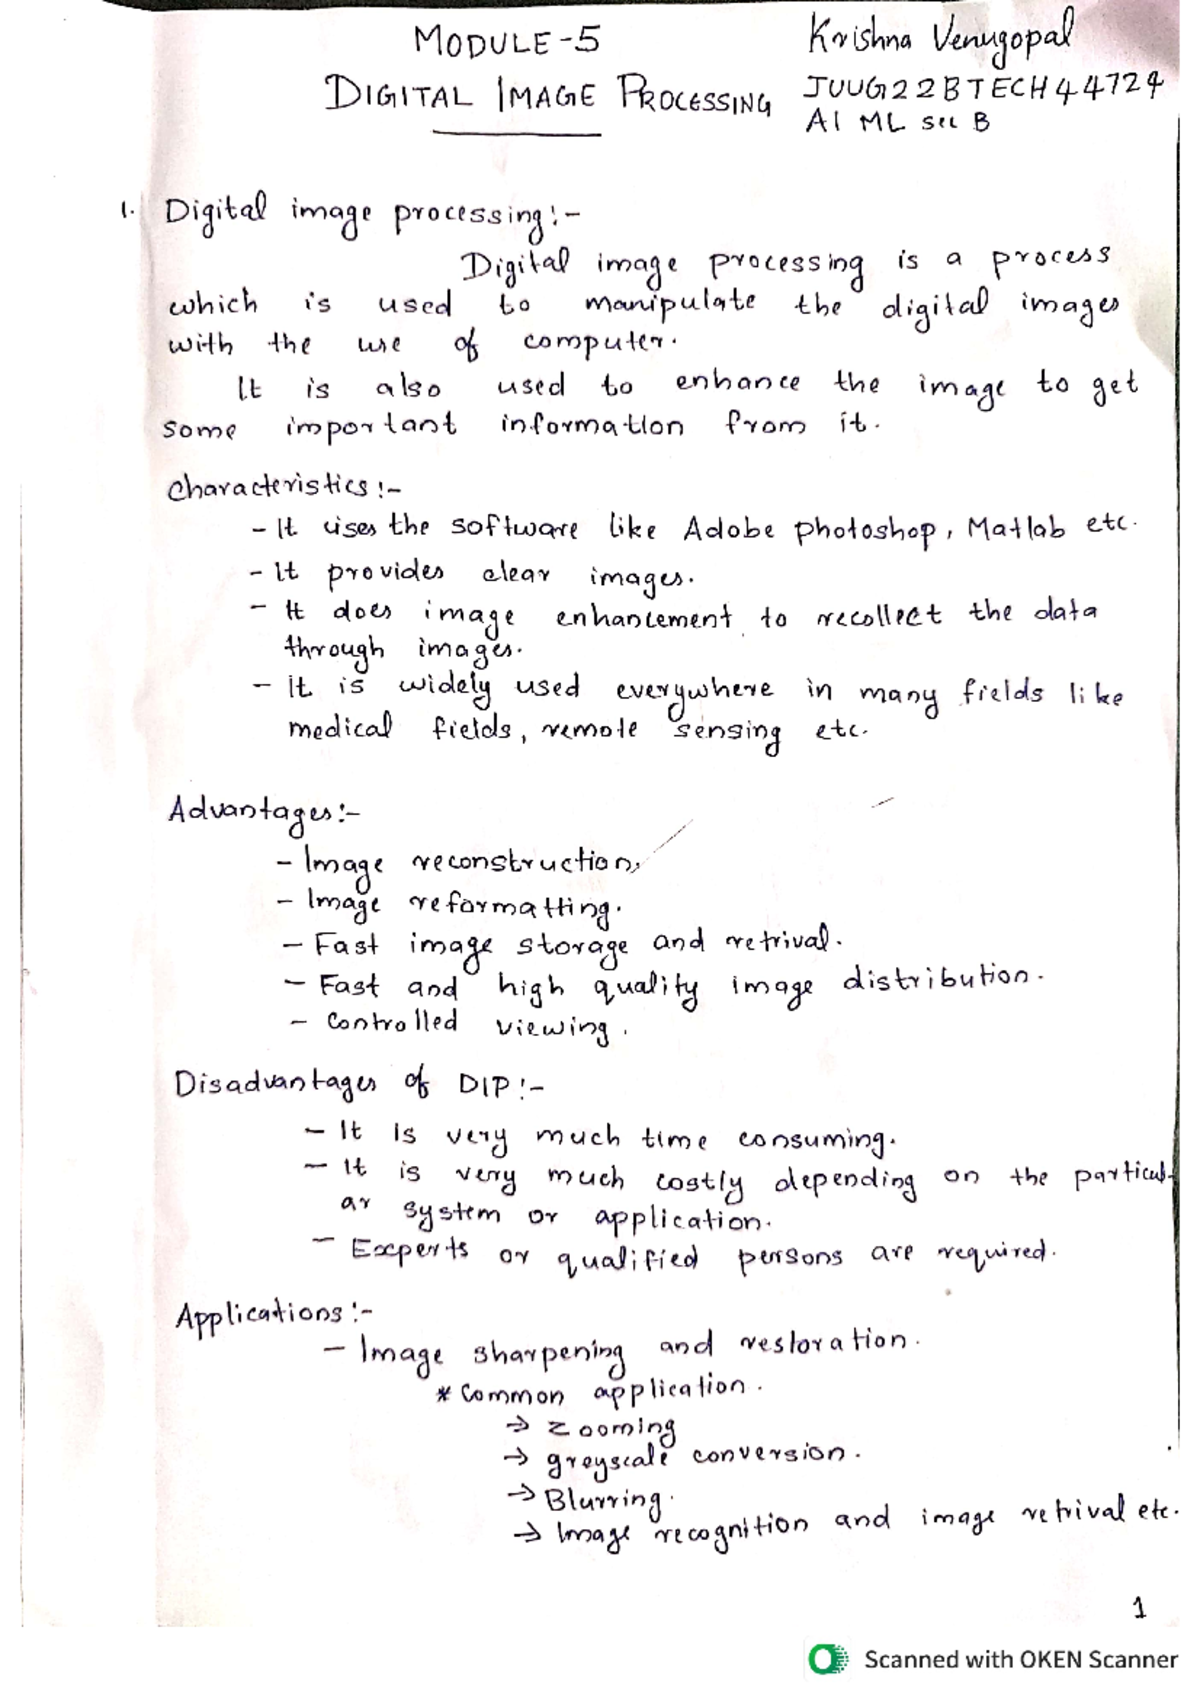 MODULE-5
Krishna Venugopal
DIGITAL IMAGE PROCESSING
JUUG22BTECH44724
AI ML sec B
1. Digital image processing:-
Digital image processing is a process
which is used to manipulate the digital images
with the use of computer.
It is also used to enhance the image to get
some important information from it.
Characteristics:-
- It uses the software like Adobe photoshop, Matlab etc.
- It provides clear images.
- It does image enhancement to recollect the data
through images.
- it is widely used everywhere in many fields like
medical fields, remote sensing etc.
Advantages:-
- Image reconstruction.
- Image reformatting.
- Fast image storage and retrival.
- Fast and high quality image distribution.
- Controlled viewing.
Disadvantages of DIP:-
- It is very much time consuming.
- It is very much costly depending on the particul-
ar system or application.
- Experts or qualified persons are required.
Applications:-
- Image sharpening and restoration.
* Common application.
→ Zooming
→ greyscale conversion.
→ Blurring.
→ Image recognition and image retrival etc.
1
Scanned with OKEN Scanner